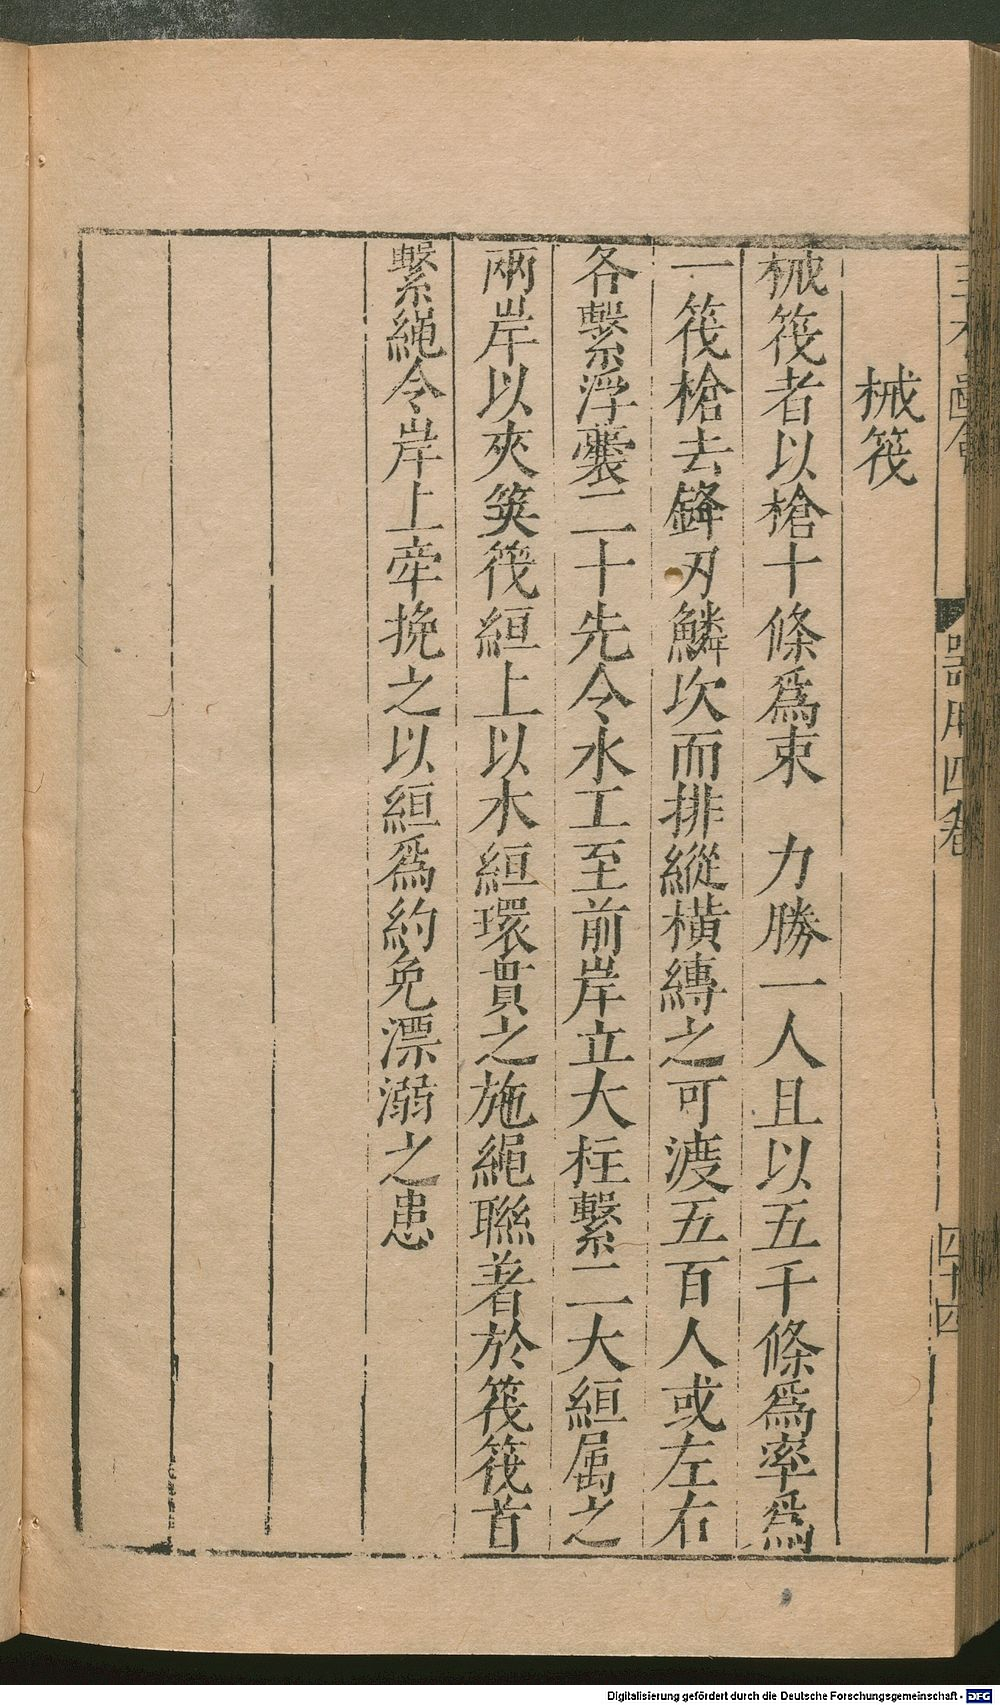 器用四卷
四十四
械筏
械筏者以槍十條爲束　力勝一人且以五千條爲率爲
一筏槍去鋒刃鱗次而排縱橫縳之可渡五百人或左右
各繫浮囊二十先令水工至前岸立大柱繫二大絙属之
兩岸以夾筏絙上以木絙環貫之施繩聯著於筏筏首
繫繩令岸上牵挽之以絙爲約免漂溺之患
Digitalisierung gefördert durch die Deutsche Forschungsgemeinschaft - DFG